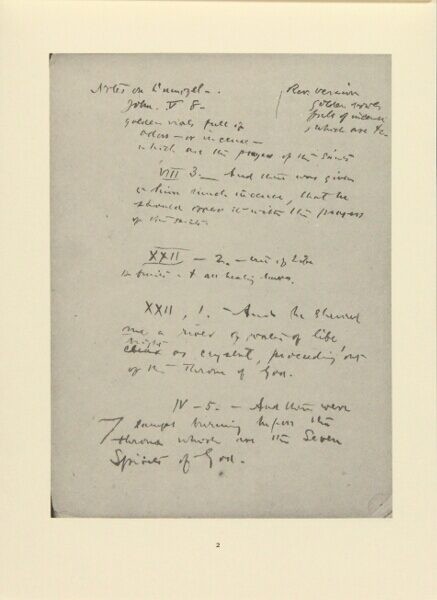 Notes on
John. V 8.
golden vials full of
odors — or incense —
which are the prayers of the Saints
Rev. version
golden bowls
full of incense
which are &c.
VIII 3. — And there was given
to him much incense, that he
should offer it with the prayers
of the saints.
XXII — 2. — tree of life
12 fruits & all healing leaves.
XXII, 1. — And he showed
me a river of water of life,
bright
clear as crystal, proceeding out
of the Throne of God.
IV — 5. — And there were
7 lamps burning before the
throne which are the Seven
Spirits of God.
2